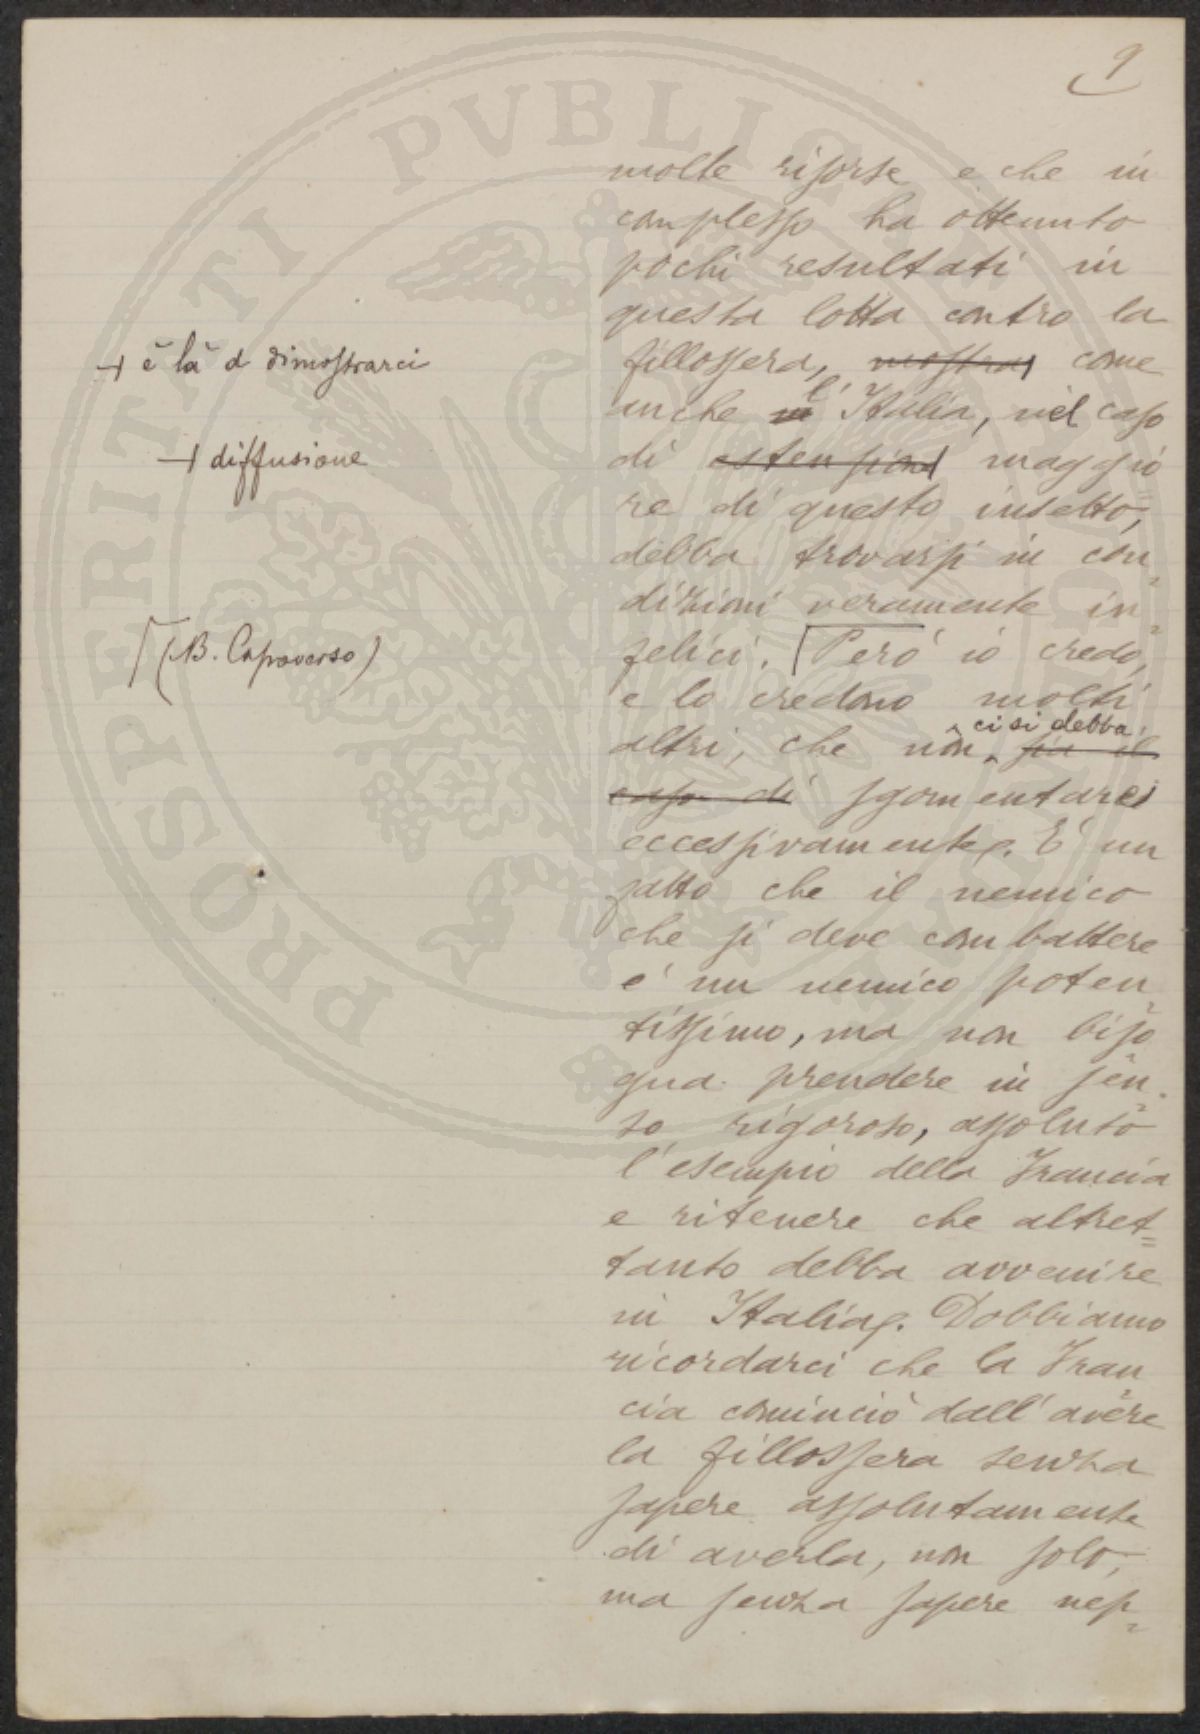 9
molte risorse e che in
complesso ha ottenuto
pochi resultati in
questa lotta contro la
⊣ è là a dimostrarci
fillossera, mostrar come
anche in l'Italia, nel caso
⊣ diffusione
di estensione maggio
re di questo insetto,
debba trovarsi in con=
dizioni veramente in=
(NB. Capoverso)
felici. Però io credo,
e lo credono molti
ci si debba
altri, che non sia il
caso di sgomentarci
eccessivamente. E' un
fatto che il nemico
che si deve combattere
è un nemico poten=
tissimo, ma non biso
gna prendere in sen=
so rigoroso, assoluto
l'esempio della Francia
e ritenere che altret=
tanto debba avvenire
in Italia. Dobbiamo
ricordarci che la Fran
cia cominciò dall'avere
la fillossera senza
sapere assolutamente
di averla, non solo,
ma senza sapere nep=
PROSPERITATI PVBLICAE